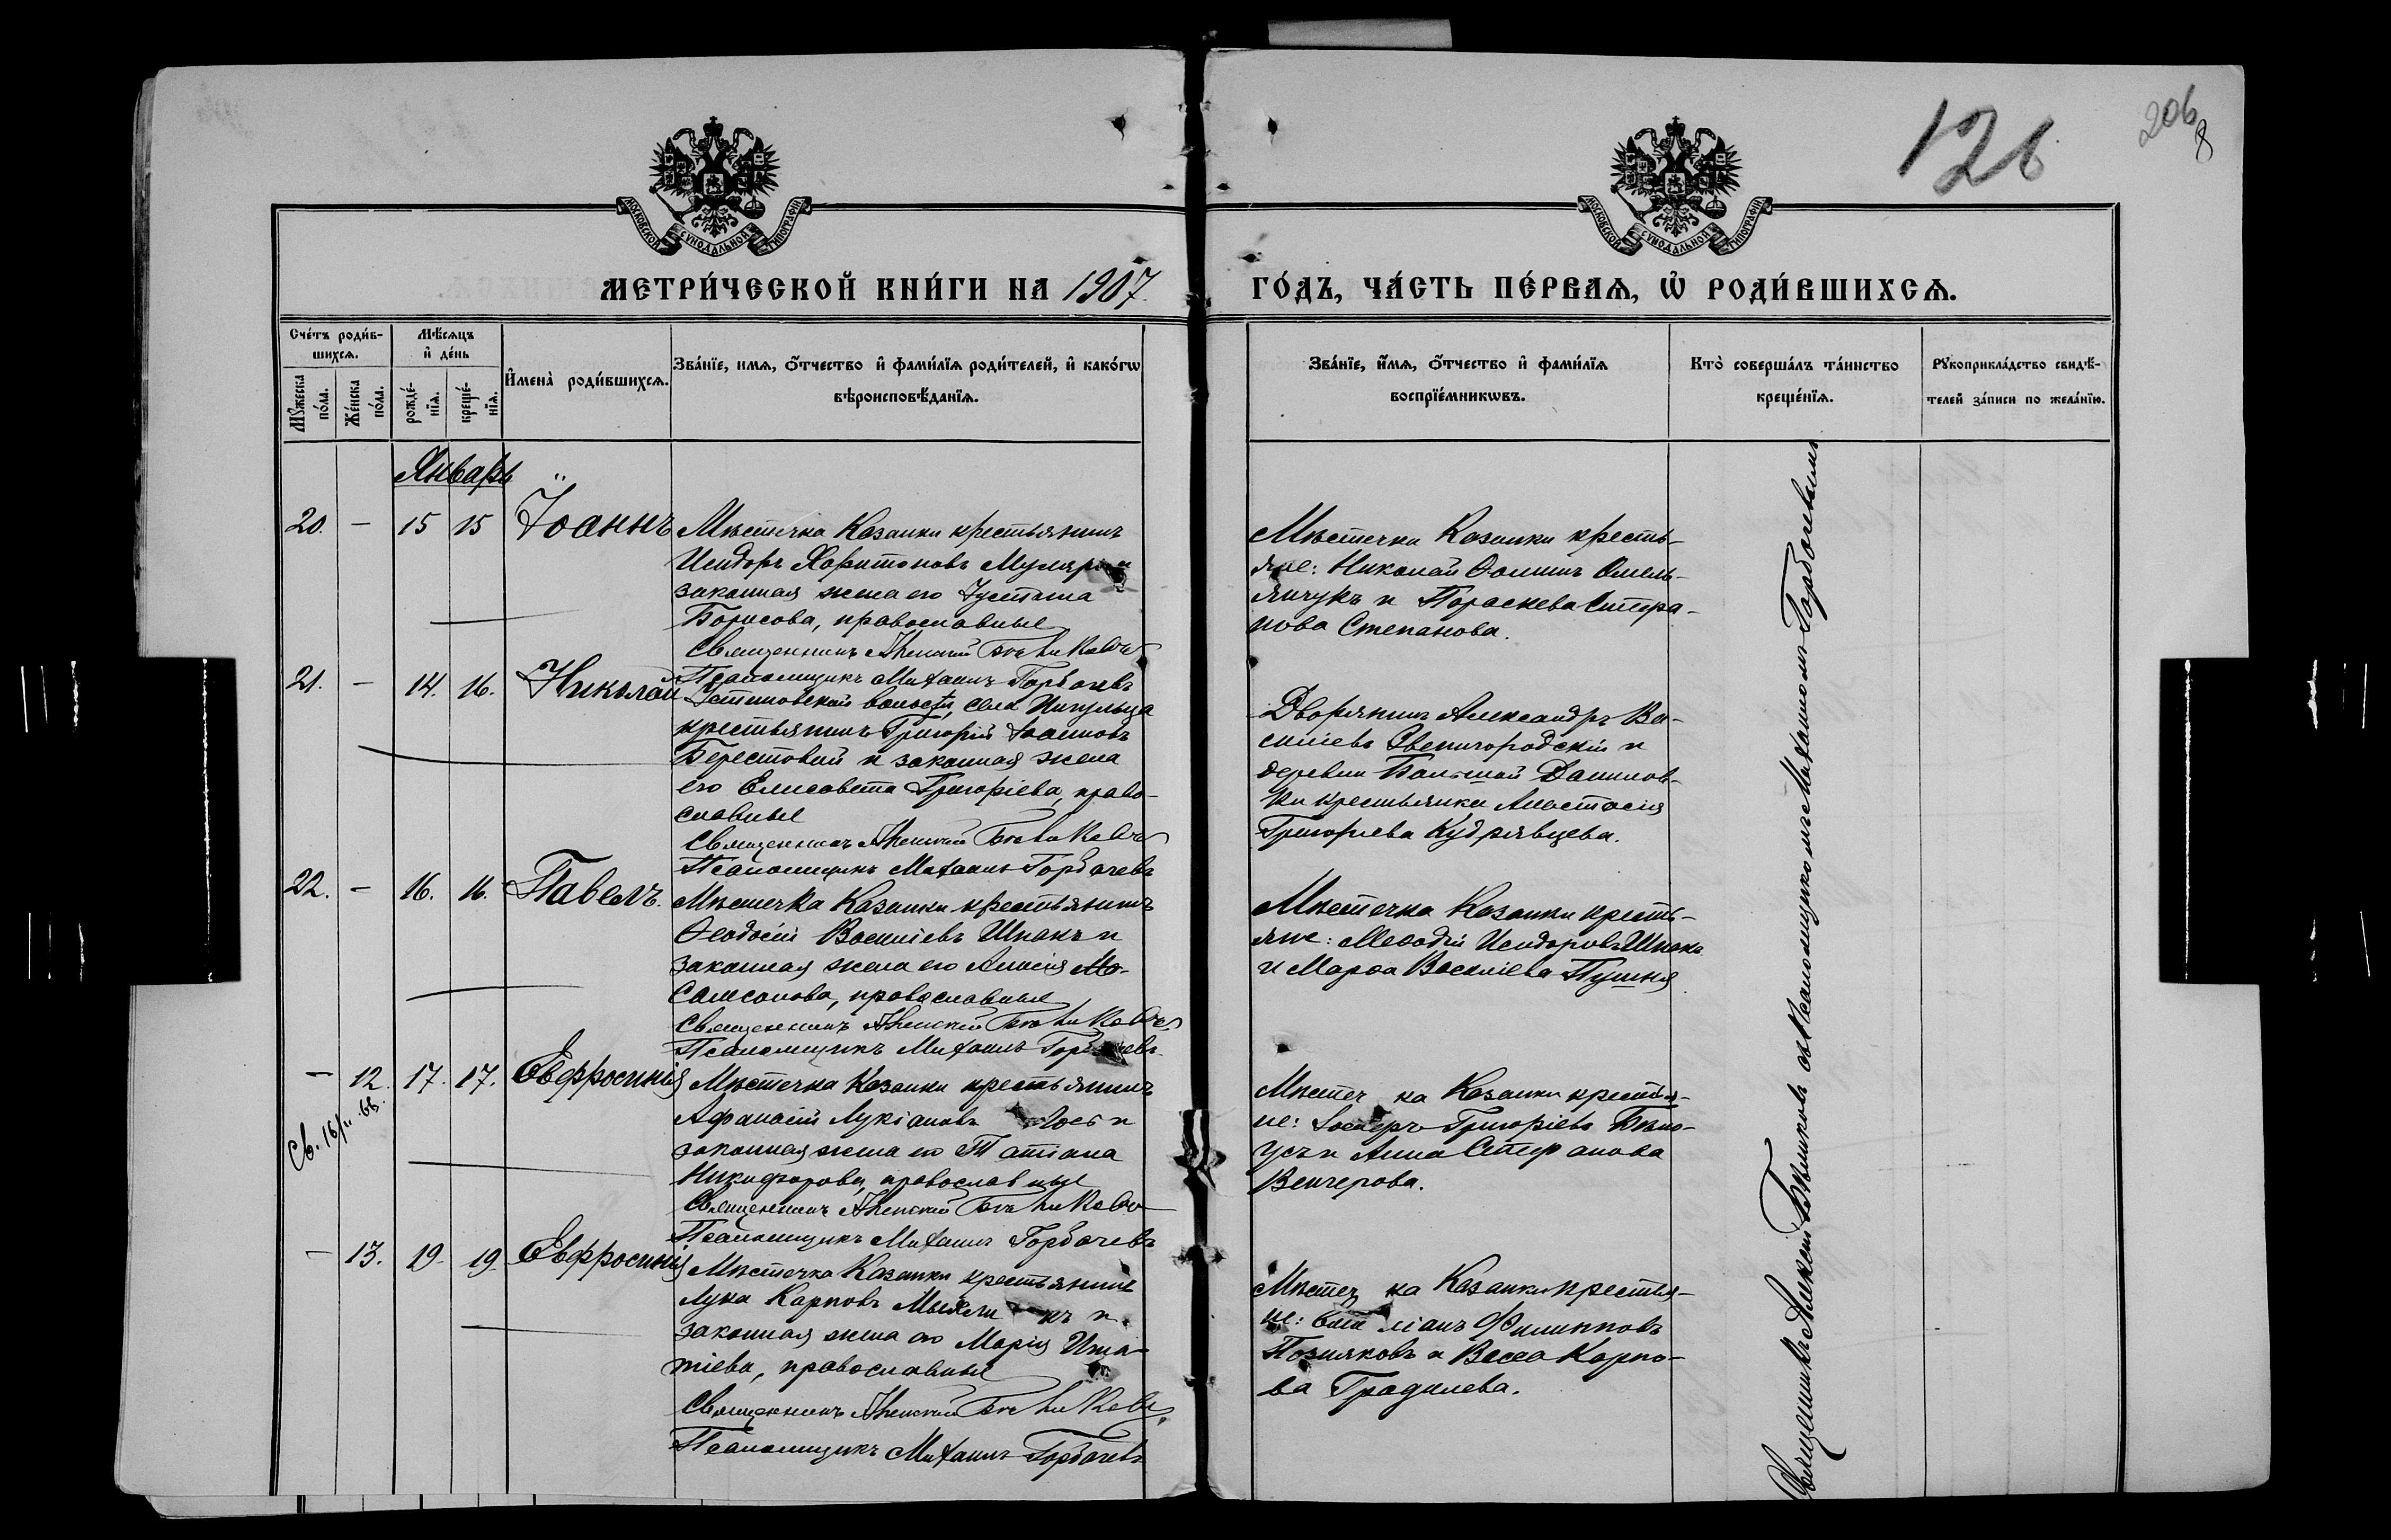 126
206
8
МОСКОВСКОЙ СѴНОДАЛЬНОЙ ТИПОГРАФІИ
МОСКОВСКОЙ СѴНОДАЛЬНОЙ ТИПОГРАФІИ
МЕТРИ́ЧЕСКОЙ КНИ́ГИ НА 1907
ГО́ДЪ, ЧА́СТЬ ПЕ́РВАЯ, Ѡ РОДИ́ВШИХСѦ.
Сче́тъ роди́вшихсѧ.
Мꙋжеска по́ла.
Же́нска по́ла.
Мѣ́сѧцъ и҆ де́нь
рожде́нїѧ.
креще́нїѧ.
И҆мена̀ роди́вшихсѧ.
Зва́нїе, имѧ, ѻ҆́тчество и҆ фами́лїѧ роди́телей, и҆ како́гѡ
вѣроисповѣ́данїѧ.
Зва́нїе, и҆́мѧ, ѻ҆́тчество и҆ фами́лїѧ
воспрїе́мникѡвъ.
Кто̀ соверша́лъ та́инство
креще́нїѧ.
Рꙋкоприкла́дство свидѣ́-
телей за́писи по жела́нїю.
Январь
20. — 15 15 Іоаннъ
Мѣстечка Казанки крестьянинъ
Исидоръ Харитоновъ Муляръ и
законная жена его Іустина
Борисова, православные
Священникъ Алексій Бѣликовъ
Псаломщикъ Михаилъ Горбачевъ
Мѣстечка Казанки кресть-
яне: Николай Ѳоминъ Омель-
янчукъ и Параскева Стефа-
нова Степанова.
21. — 14. 16. Николай
Устиновской волости, села Ингульца
крестьянинъ Григорій Іоанновъ
Берестовый и законная жена
его Елисавета Григоріева, право-
славные
Священникъ Алексій Бѣликовъ
Псаломщикъ Михаилъ Горбачевъ
Дворянинъ Александръ Ва-
силіевъ Звенигородскій и
деревни Большой Данилов-
ки крестьянка Анастасія
Григорьева Кудрявцева.
22. — 16. 16. Павелъ.
Мѣстечка Казанки крестьянинъ
Ѳеодосій Василіевъ Шпакъ и
законная жена его Анисія Ма-
Самсонова, православные
Священникъ Алексій Бѣликовъ
Псаломщикъ Михаилъ Горбачевъ
Мѣстечка Казанки кресть-
яне: Меѳодій Исидоровъ Шпакъ
и Марѳа Василіева Пушня
— 12. 17. 17. Евфросинія
Св.
Мѣстечка Казанки крестьянинъ
Афанасій Лукіановъ и
законная жена его Татіана
Никифорова, православные
Священникъ Алексій Бѣликовъ
Псаломщикъ Михаилъ Горбачевъ
Мѣстечка Казанки крестья-
не: Іосифъ Григоріевъ Бѣло-
усъ и Анна Стефанова
Венгерова.
— 13. 19. 19. Евфросинія
Мѣстечка Казанки крестьянинъ
Лука Карповъ и
законная жена его Марія Игна-
тіева, православные
Священникъ Алексій Бѣликовъ
Псаломщикъ Михаилъ Горбачевъ
Мѣстечка Казанки крестья-
не: Филипповъ
Позняковъ и Васса Карпо-
ва Градилева.
Священникъ Алексій Бѣликовъ съ Псаломщикомъ Михаиломъ Горбачевымъ